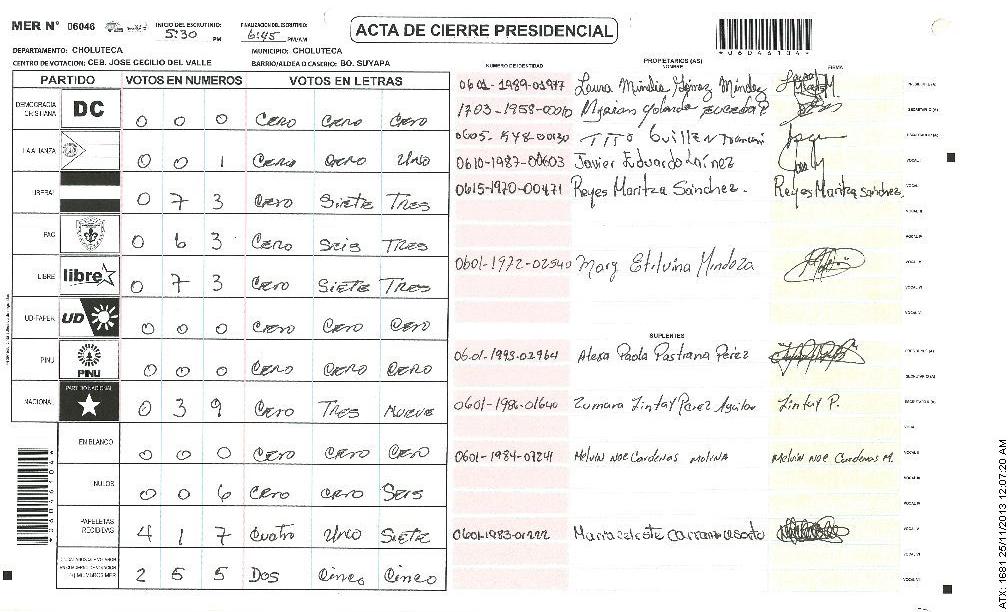 MER N° 06046 INICIO DEL ESCRUTINIO: 5:30 PM FINALIZACION DEL ESCRUTINIO: 6:45 PM/AM
ACTA DE CIERRE PRESIDENCIAL
DEPARTAMENTO: CHOLUTECA MUNICIPIO: CHOLUTECA
CENTRO DE VOTACION: CEB. JOSE CECILIO DEL VALLE BARRIO/ALDEA O CASERIO: BO. SUYAPA
PARTIDO VOTOS EN NUMEROS VOTOS EN LETRAS
DEMOCRACIA CRISTIANA DC 0 0 0 Cero Cero Cero
LA ALIANZA 0 0 1 Cero Cero Uno
LIBERAL 0 7 3 Cero Siete Tres
PAC 0 6 3 Cero Seis Tres
LIBRE libre 0 7 3 Cero Siete Tres
UD-FAPER UD 0 0 0 Cero Cero Cero
PINU PINU 0 0 0 Cero Cero Cero
NACIONAL PARTIDO NACIONAL 0 3 9 Cero Tres Nueve
EN BLANCO 0 0 0 Cero Cero Cero
NULOS 0 0 6 Cero Cero Seis
PAPELETAS RECIBIDAS 4 1 7 Cuatro Uno Siete
2 5 5 Dos Cinco Cinco
NUMERO DE IDENTIDAD PROPIETARIOS (AS) NOMBRE FIRMA
0601-1989-01977 Laura Mindia Gómez Méndez
1703-1958-00010 Myrian Yolanda
TITO Guillen
0610-1987-00603 Javier Eduardo Laínez
0615-1970-00471 Reyes Maritza Sánchez. Reyes Maritza Sánchez.
0601-1972-02540 Mary Etilvina Mendoza
SUPLENTES
0601-1993-02964 Alexa Paola Pastrana Pérez
0601-1986-01640 Zumara Lintay Perez Aguilar Lintay P.
0601-1984-07241 Melvin Noe Cardenas Molina Melvin Noe Cardenas M.
0601-1983-01222
*06046104*
ATX: 1681 25/11/2013 12:07:20 AM